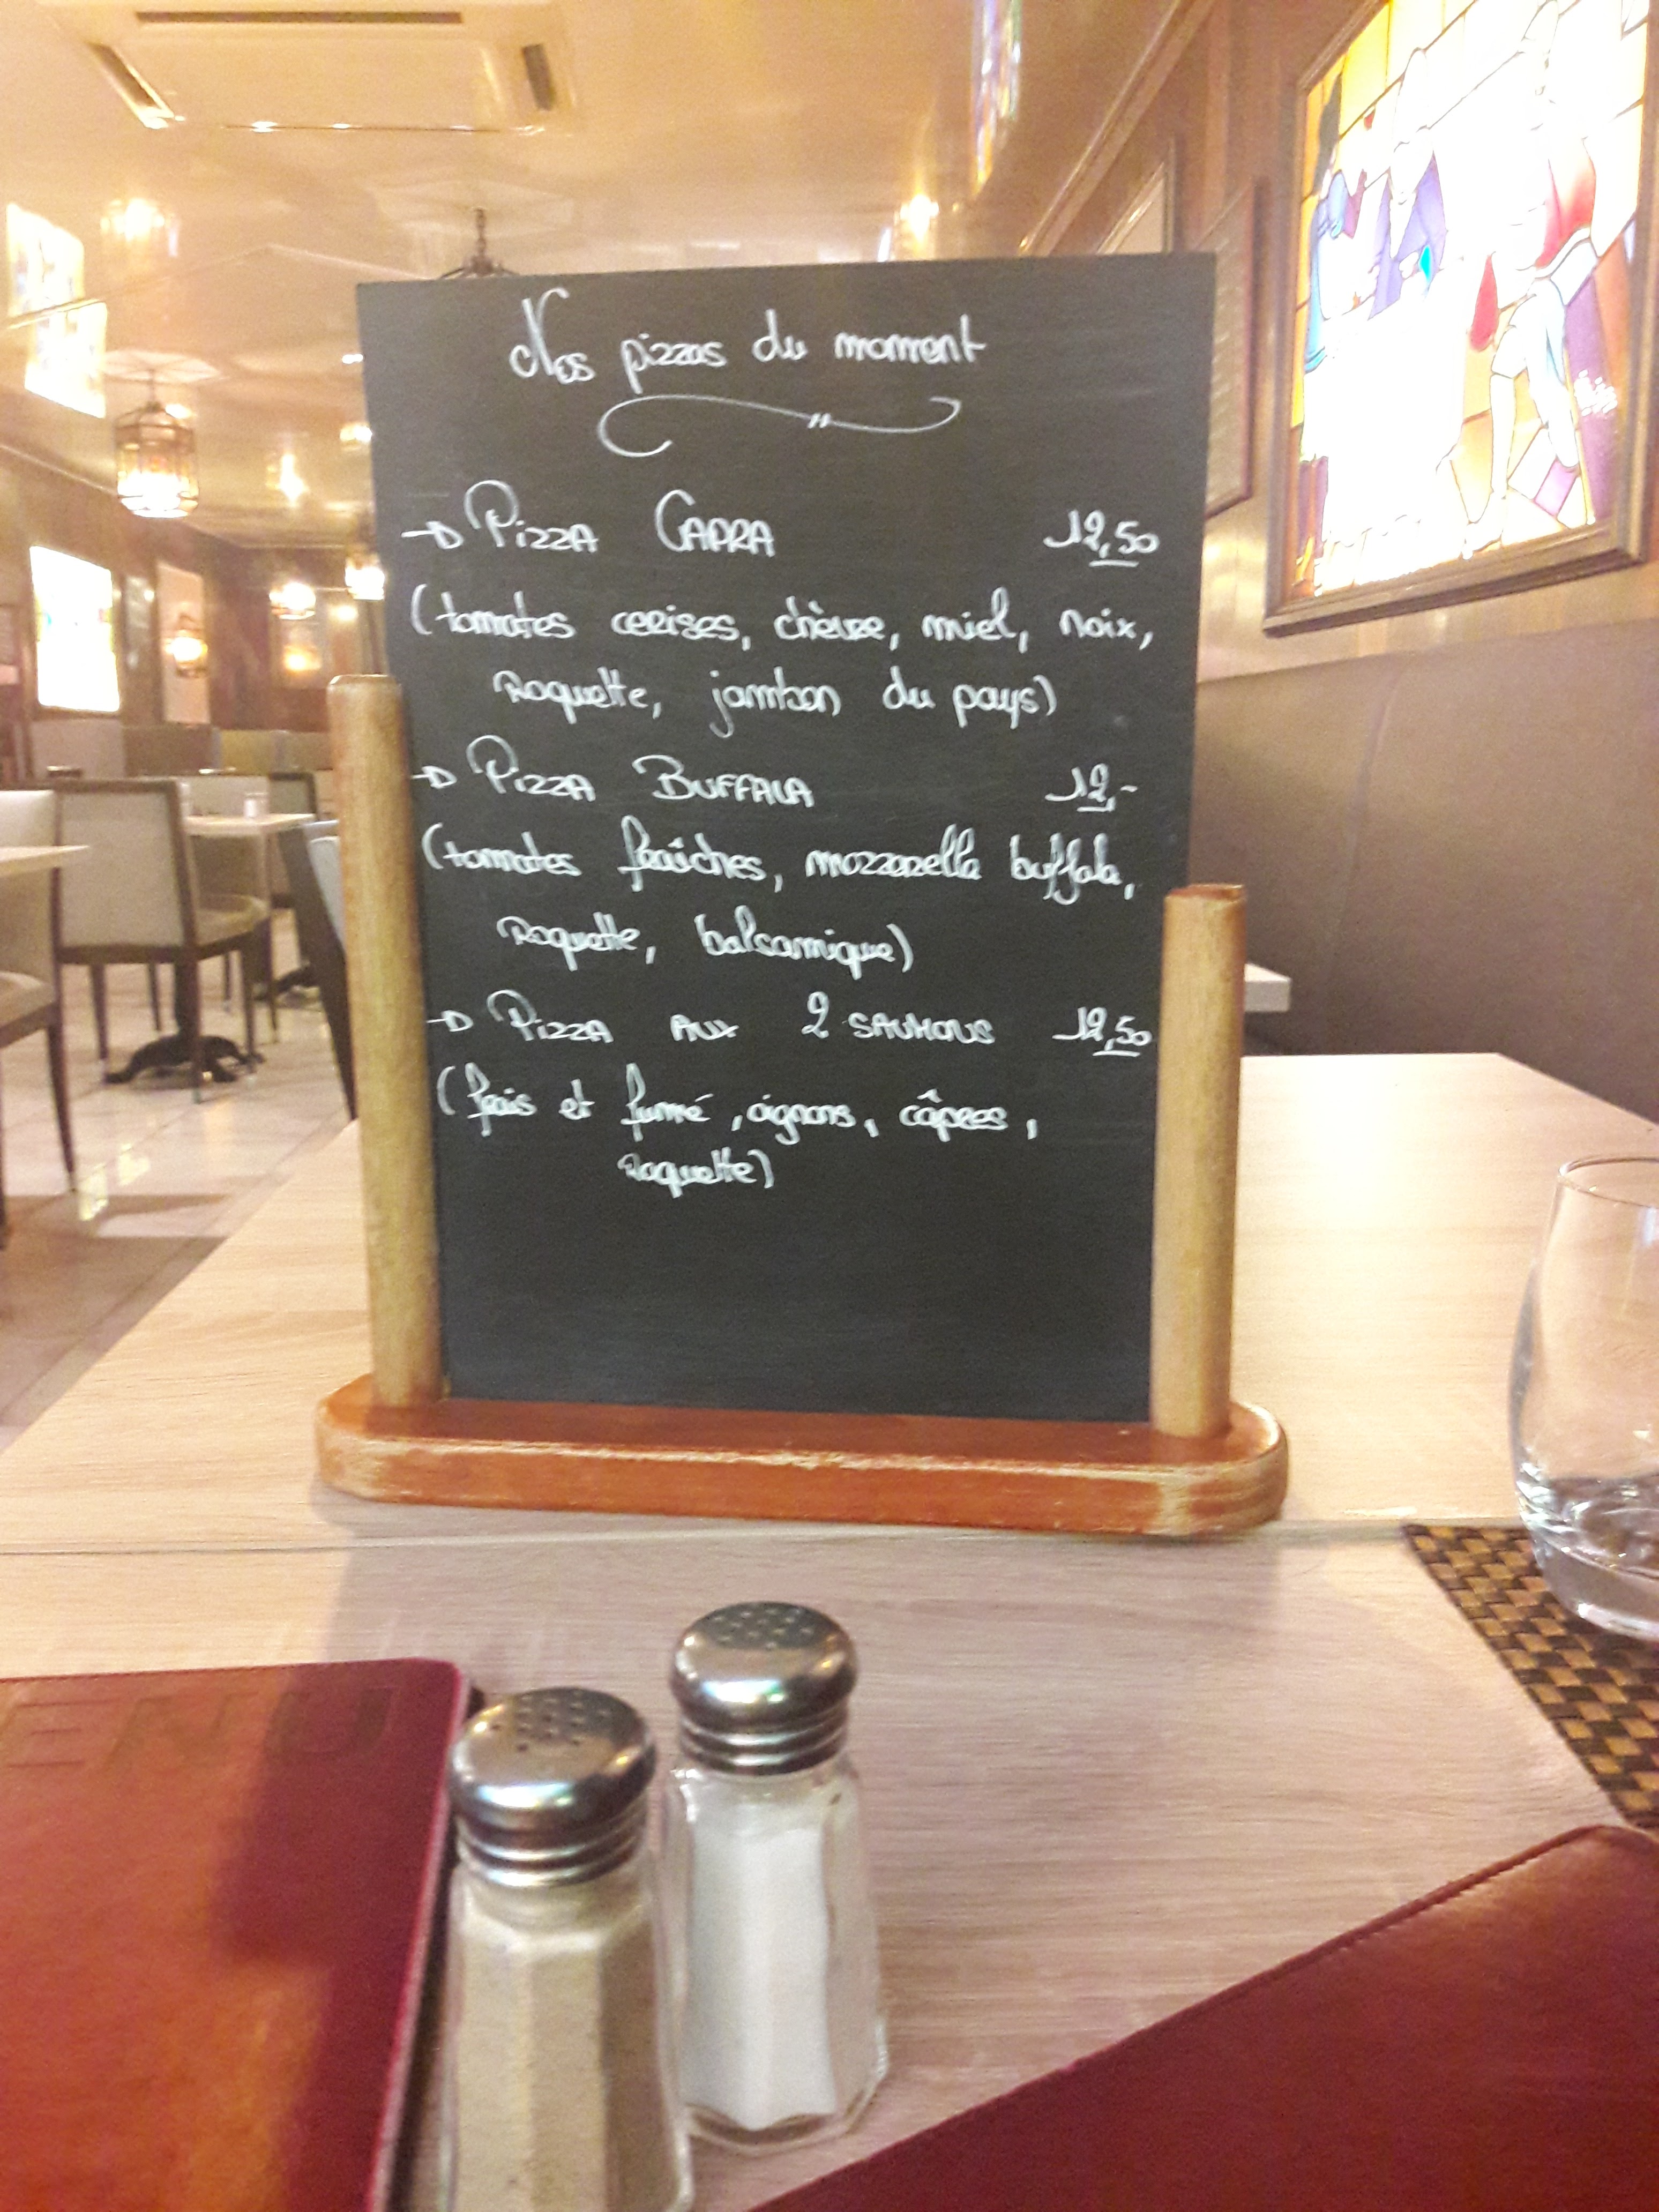 Nos pizzas du moment
→ Pizza CAPRA 12,50
(tomates cerises, chèvre, miel, noix,
roquette, jambon du pays)
→ Pizza BUFFALA 12,-
(tomates fraîches, mozzarella buffala,
roquette, balsamique)
→ Pizza AUX 2 SAUMONS 12,50
(frais et fumé, oignons, câpres,
roquette)
ENU